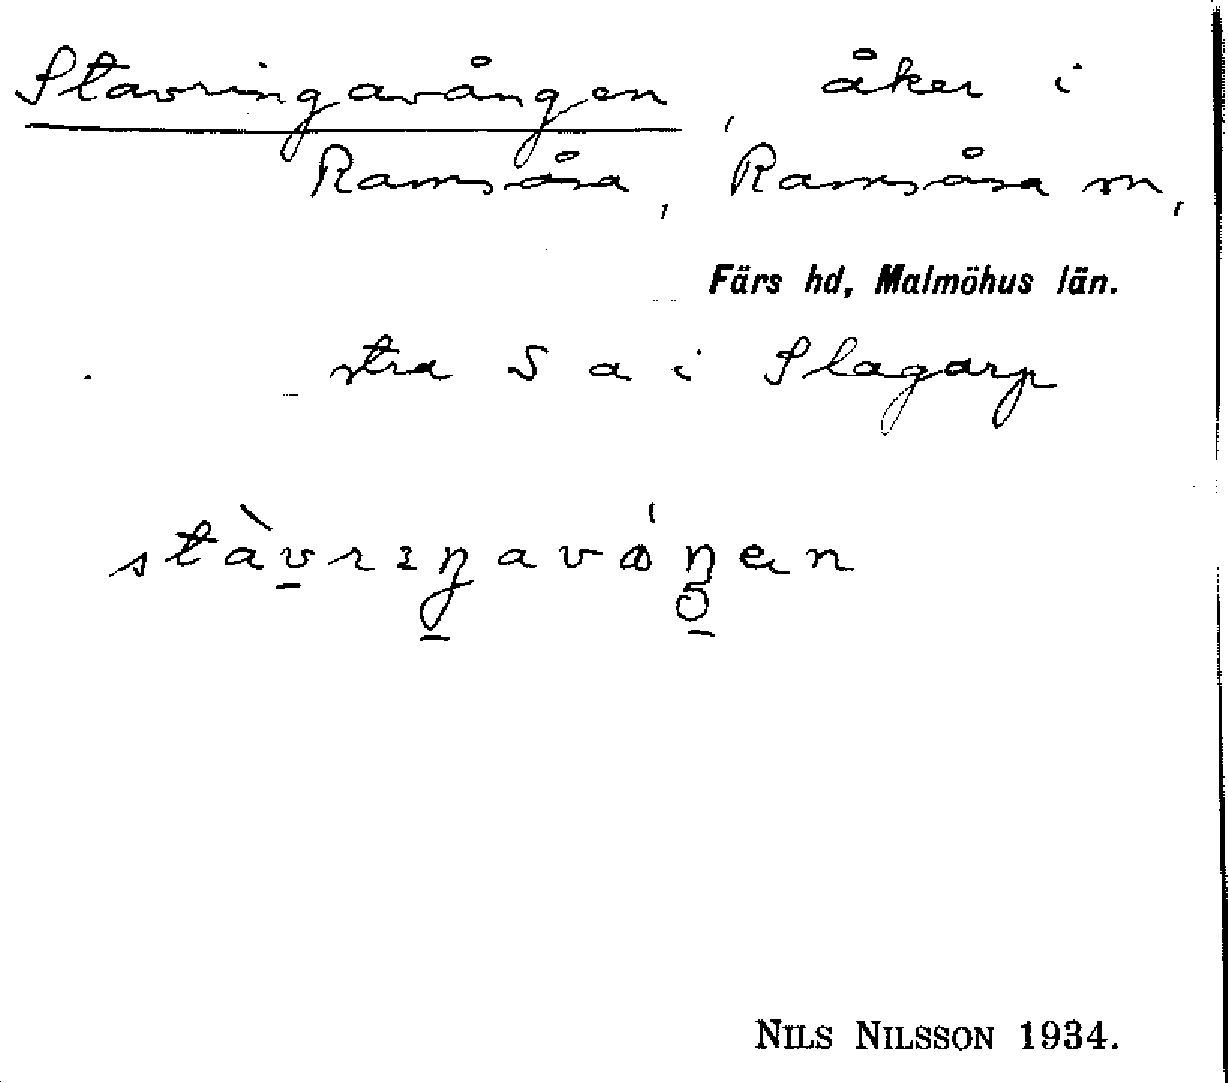 Stavringavången, åker i
Ramsåsa, Ramsåsa sn,
Färs hd, Malmöhus län.
stra S a i Slagarp
stàvrıŋavåŋen
NILS NILSSON 1934.